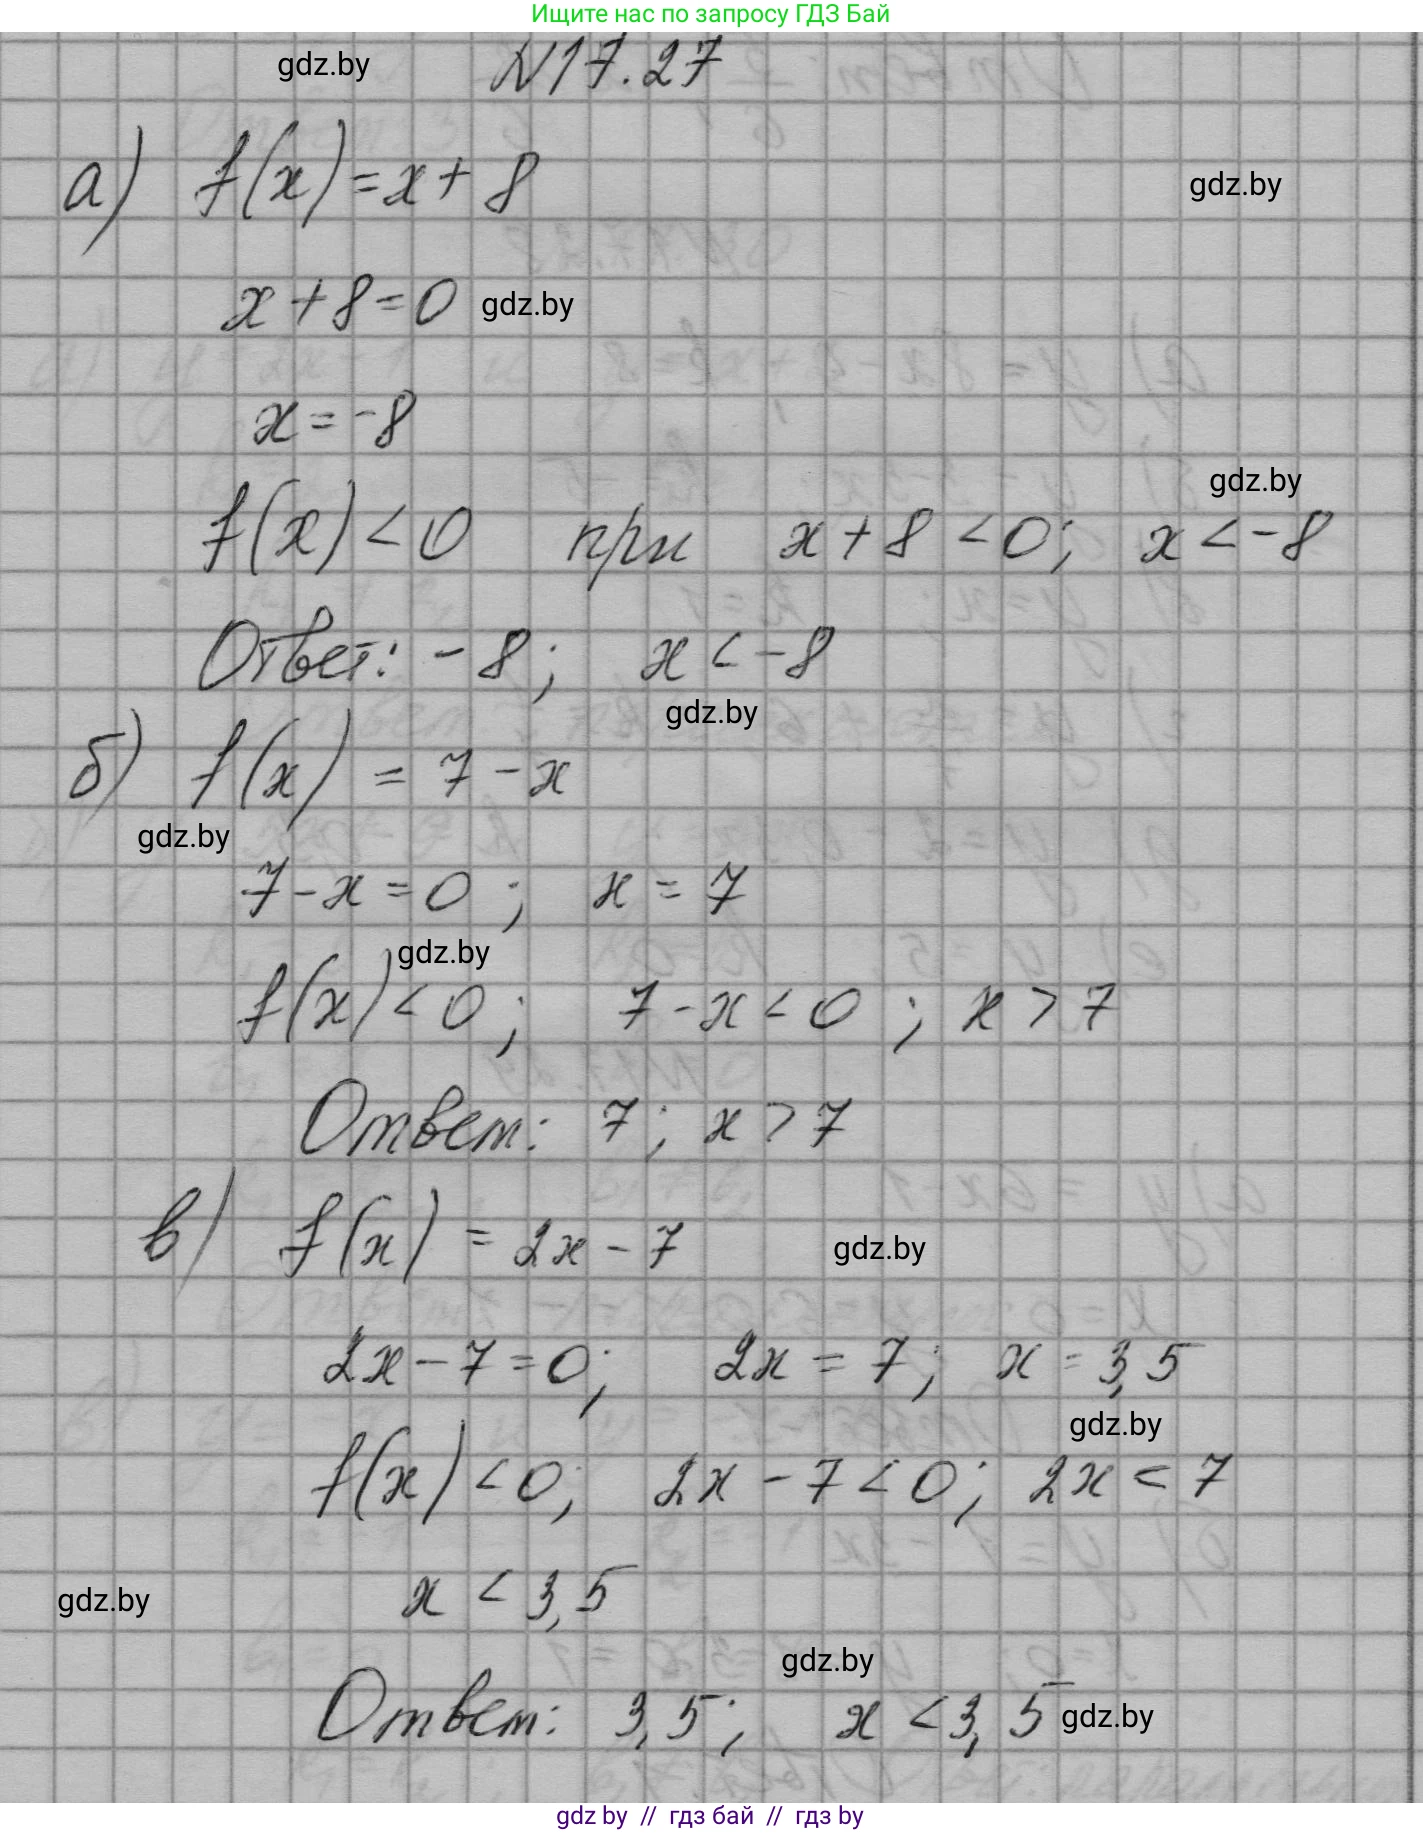 Ищите нас по запросу ГДЗ Бай
gdz.by
N17.27
а) f(x)=x+8
gdz.by
x+8=0 gdz.by
x=-8
gdz.by
f(x)<0 при x+8<0; x<-8
Ответ: -8; x<-8
gdz.by
б) f(x) = 7-x
gdz.by
7-x=0; x=7
gdz.by
f(x)<0; 7-x<0; x>7
Ответ: 7; x>7
в) f(x) = 2x-7
gdz.by
2x-7=0; 2x=7; x=3,5
gdz.by
f(x)<0; 2x-7<0; 2x<7
x<3,5
gdz.by
gdz.by
Ответ: 3,5; x<3,5 gdz.by
gdz by // гдз бай // гдз by